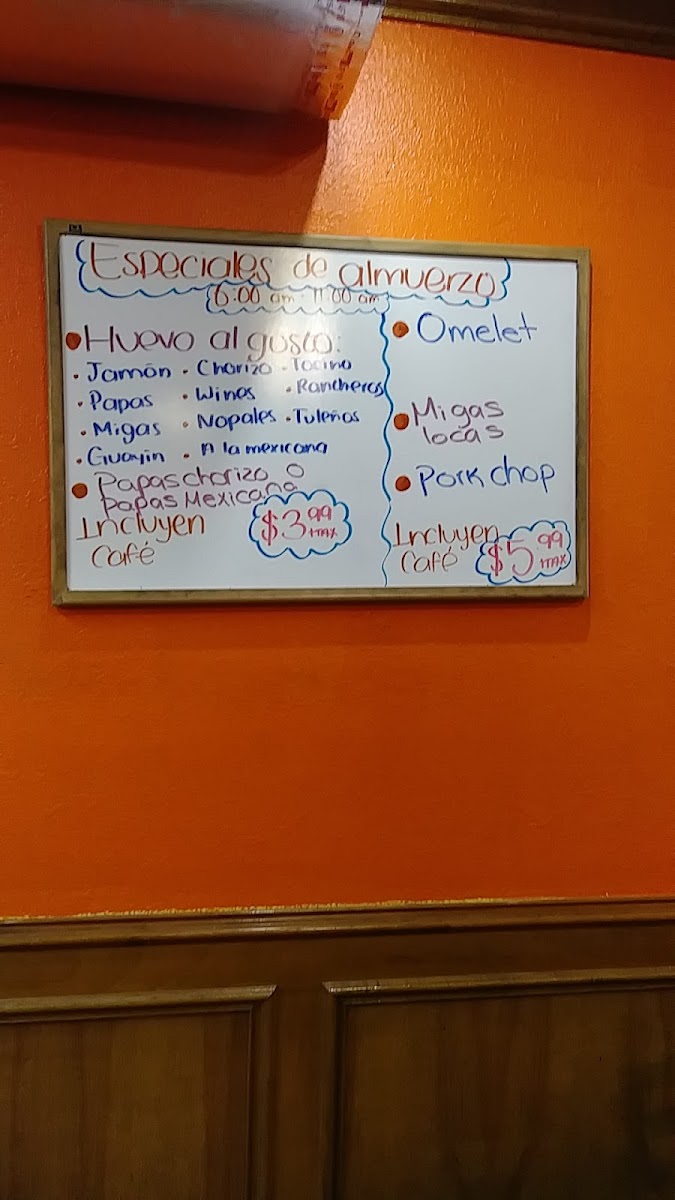 Especiales de almuerzo
6:00 am - 11:00 am
• Huevo al gusto:
• Jamón • Chorizo • Tocino
• Papas • Winos • Rancheros
• Migas • Nopales • Tuleños
• Guayin • A la mexicana
• Papas chorizo O
papas Mexicana
Incluyen
Café
$3.99
+TAX
• Omelet
• Migas
locas
• Pork chop
Incluyen
Café
$5.99
+TAX